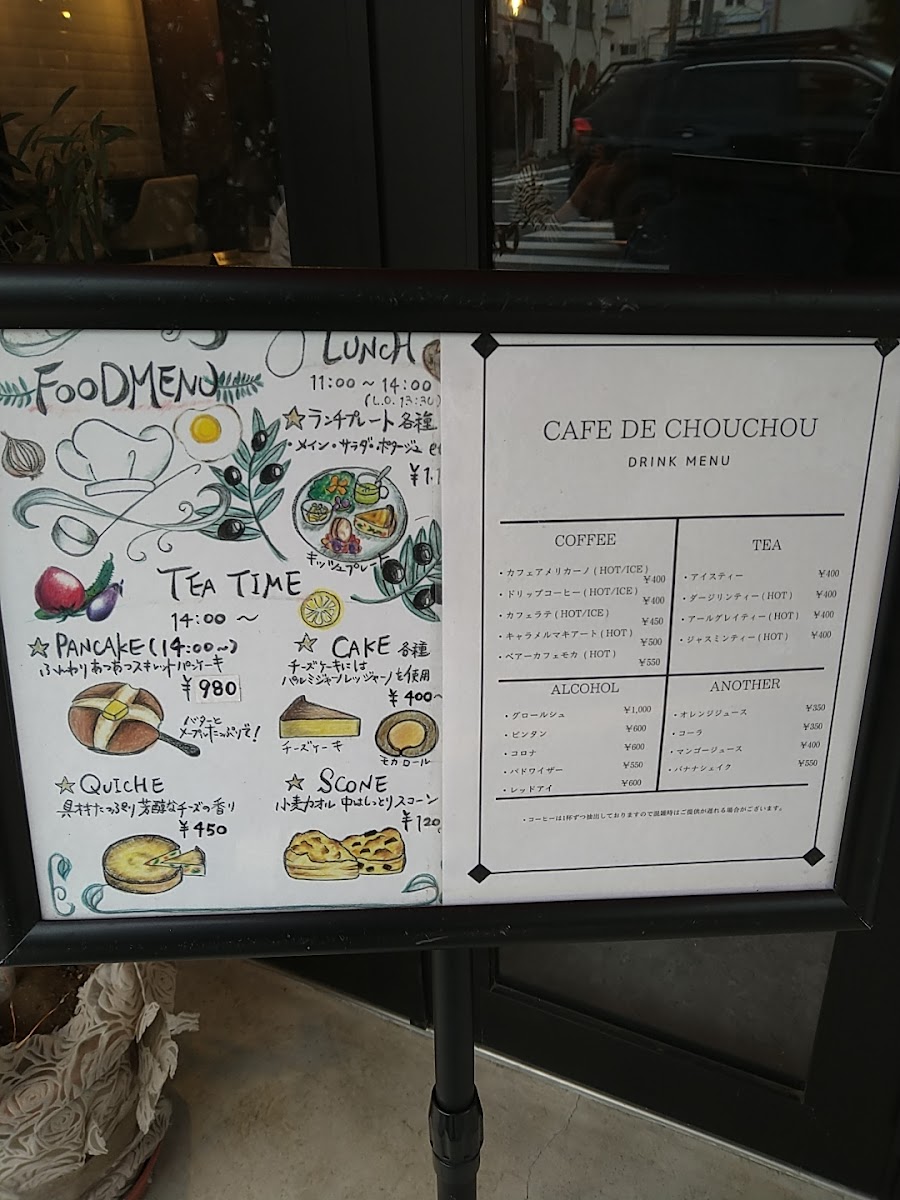 FOODMENU
LUNCH
11:00 ~ 14:00
(L.O. 13:30)
☆ランチプレート 各種
・メイン・サラダ・ポタージュ
¥1,1
キッシュプレート
TEA TIME
14:00 ~
☆PANCAKE(14:00~)
ふんわりあつあつスキレットパンケーキ
¥980
バターと
メープルたっぷりで!
☆ CAKE 各種
チーズケーキには
パルミジャーノレッジャーノを使用
¥400~
チーズケーキ
モカロール
☆QUICHE
具材たっぷり芳醇なチーズの香り
¥450
☆ SCONE
小麦カオル 中はしっとりスコーン
¥120
CAFE DE CHOUCHOU
DRINK MENU
COFFEE
・カフェアメリカーノ ( HOT/ICE ) ¥400
・ドリップコーヒー ( HOT/ICE ) ¥400
・カフェラテ ( HOT/ICE ) ¥450
・キャラメルマキアート ( HOT ) ¥500
・ベアーカフェモカ ( HOT ) ¥550
TEA
・アイスティー ¥400
・ダージリンティー ( HOT ) ¥400
・アールグレイティー ( HOT ) ¥400
・ジャスミンティー ( HOT ) ¥400
ALCOHOL
・グロールシュ ¥1,000
・ビンタン ¥600
・コロナ ¥600
・バドワイザー ¥550
・レッドアイ ¥600
ANOTHER
・オレンジジュース ¥350
・コーラ ¥350
・マンゴージュース ¥400
・バナナシェイク ¥550
・コーヒーは1杯ずつ抽出しておりますので混雑時はご提供が遅れる場合がございます。